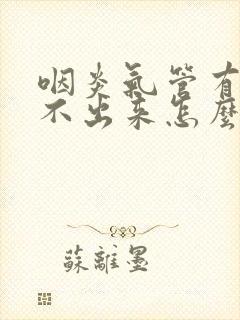 咽炎氣管有
不出來怎麼
蘇離墨